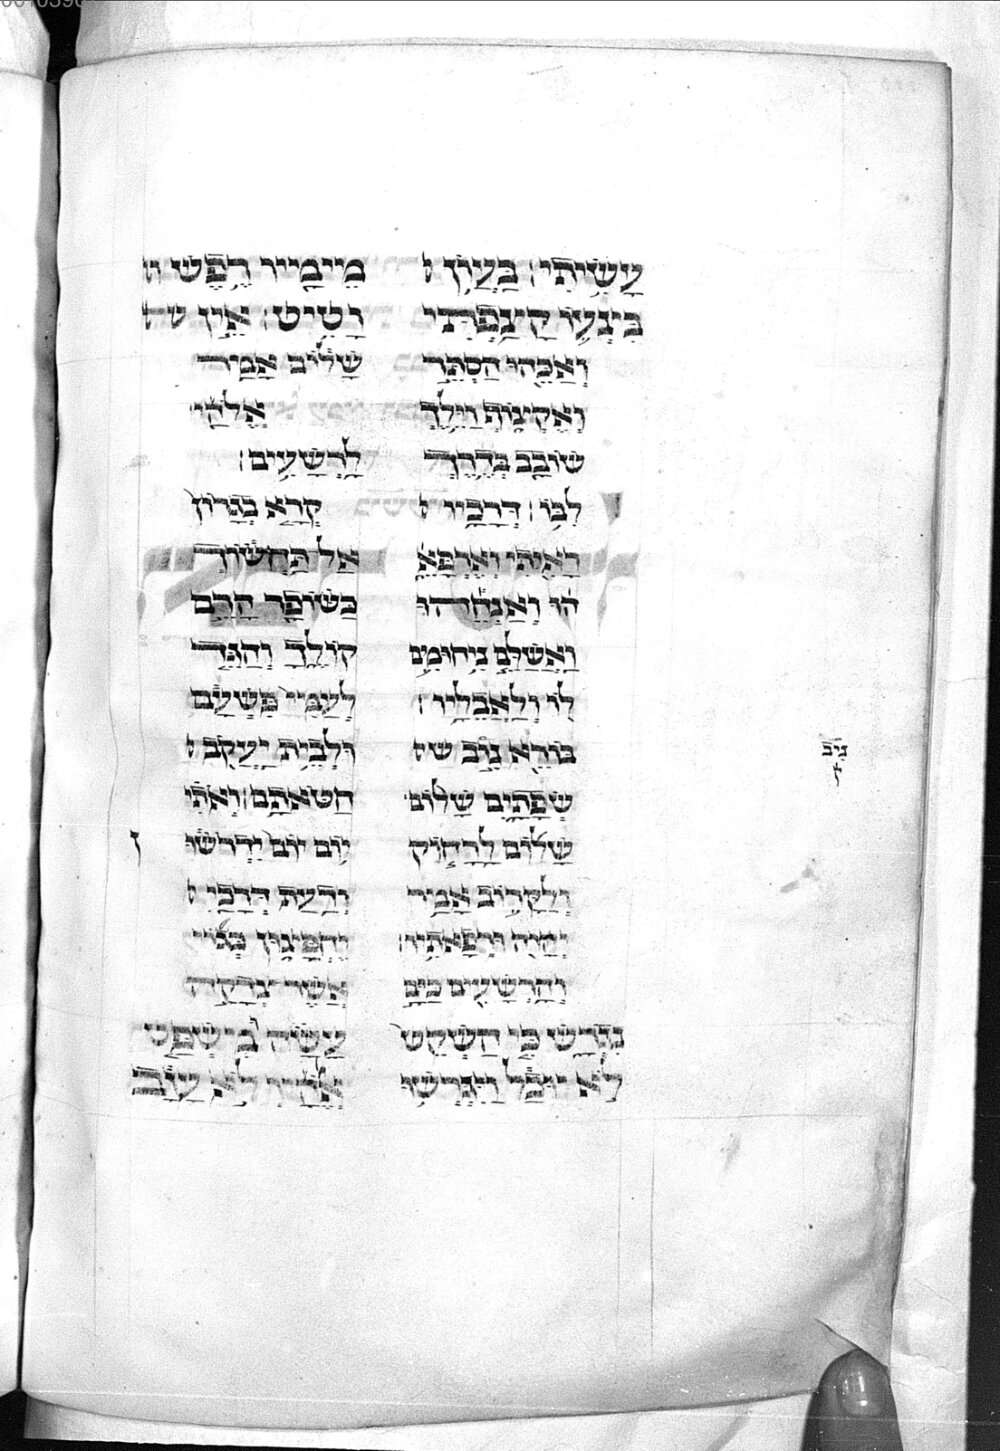 עָשִׂיתִי: בַּעֲוֹן
בִּצְעוֹ קָצַפְתִּי
וְאַכֵּהוּ הַסְתֵּר
וְאֶקְצוֹף וַיֵּלֶךְ
שׁוֹבָב בְּדֶרֶךְ
לִבּוֹ: דְּרָכָיו
רָאִיתִי וְאֶרְפָּאֵ
הוּ וְאַנְחֵיהוּ
וַאֲשַׁלֵּם נִיחוּמִים
לוֹ וְלַאֲבֵלָיו:
בּוֹרֵא נוּב ש
שְׂפָתָיִם שָׁלוֹם
שָׁלוֹם לָרָחוֹק
וְלַקָּרוֹב אָמַר
יְהוָה וּרְפָאתִיו:
וְהָרְשָׁעִים כַּיָּם
נִגְרָשׁ כִּי הַשְׁקֵט
לֹא יוּכָל וַיִּגְרְשׁוּ
מֵימָיו רֶפֶשׁ ו
וָטִיט: אֵין ש
שָׁלוֹם אָמַר
אֱלֹהַי
לָרְשָׁעִים:
קְרָא בְגָרוֹן
אַל תַּחְשׂוֹךְ
כַּשּׁוֹפָר הָרֵם
קוֹלֶךָ וְהַגֵּד
לְעַמִּי פִּשְׁעָם
וּלְבֵית יַעֲקֹב
חַטֹּאתָם: וְאֹתִי
יוֹם יוֹם יִדְרֹשׁוּ
וְדַעַת דְּרָכַי
יֶחְפָּצוּן כְּגוֹי
אֲשֶׁר צְדָקָה
עָשָׂה וּמִשְׁפַּט
אֱלֹהָיו לֹא עָזָב
נִיב
ק